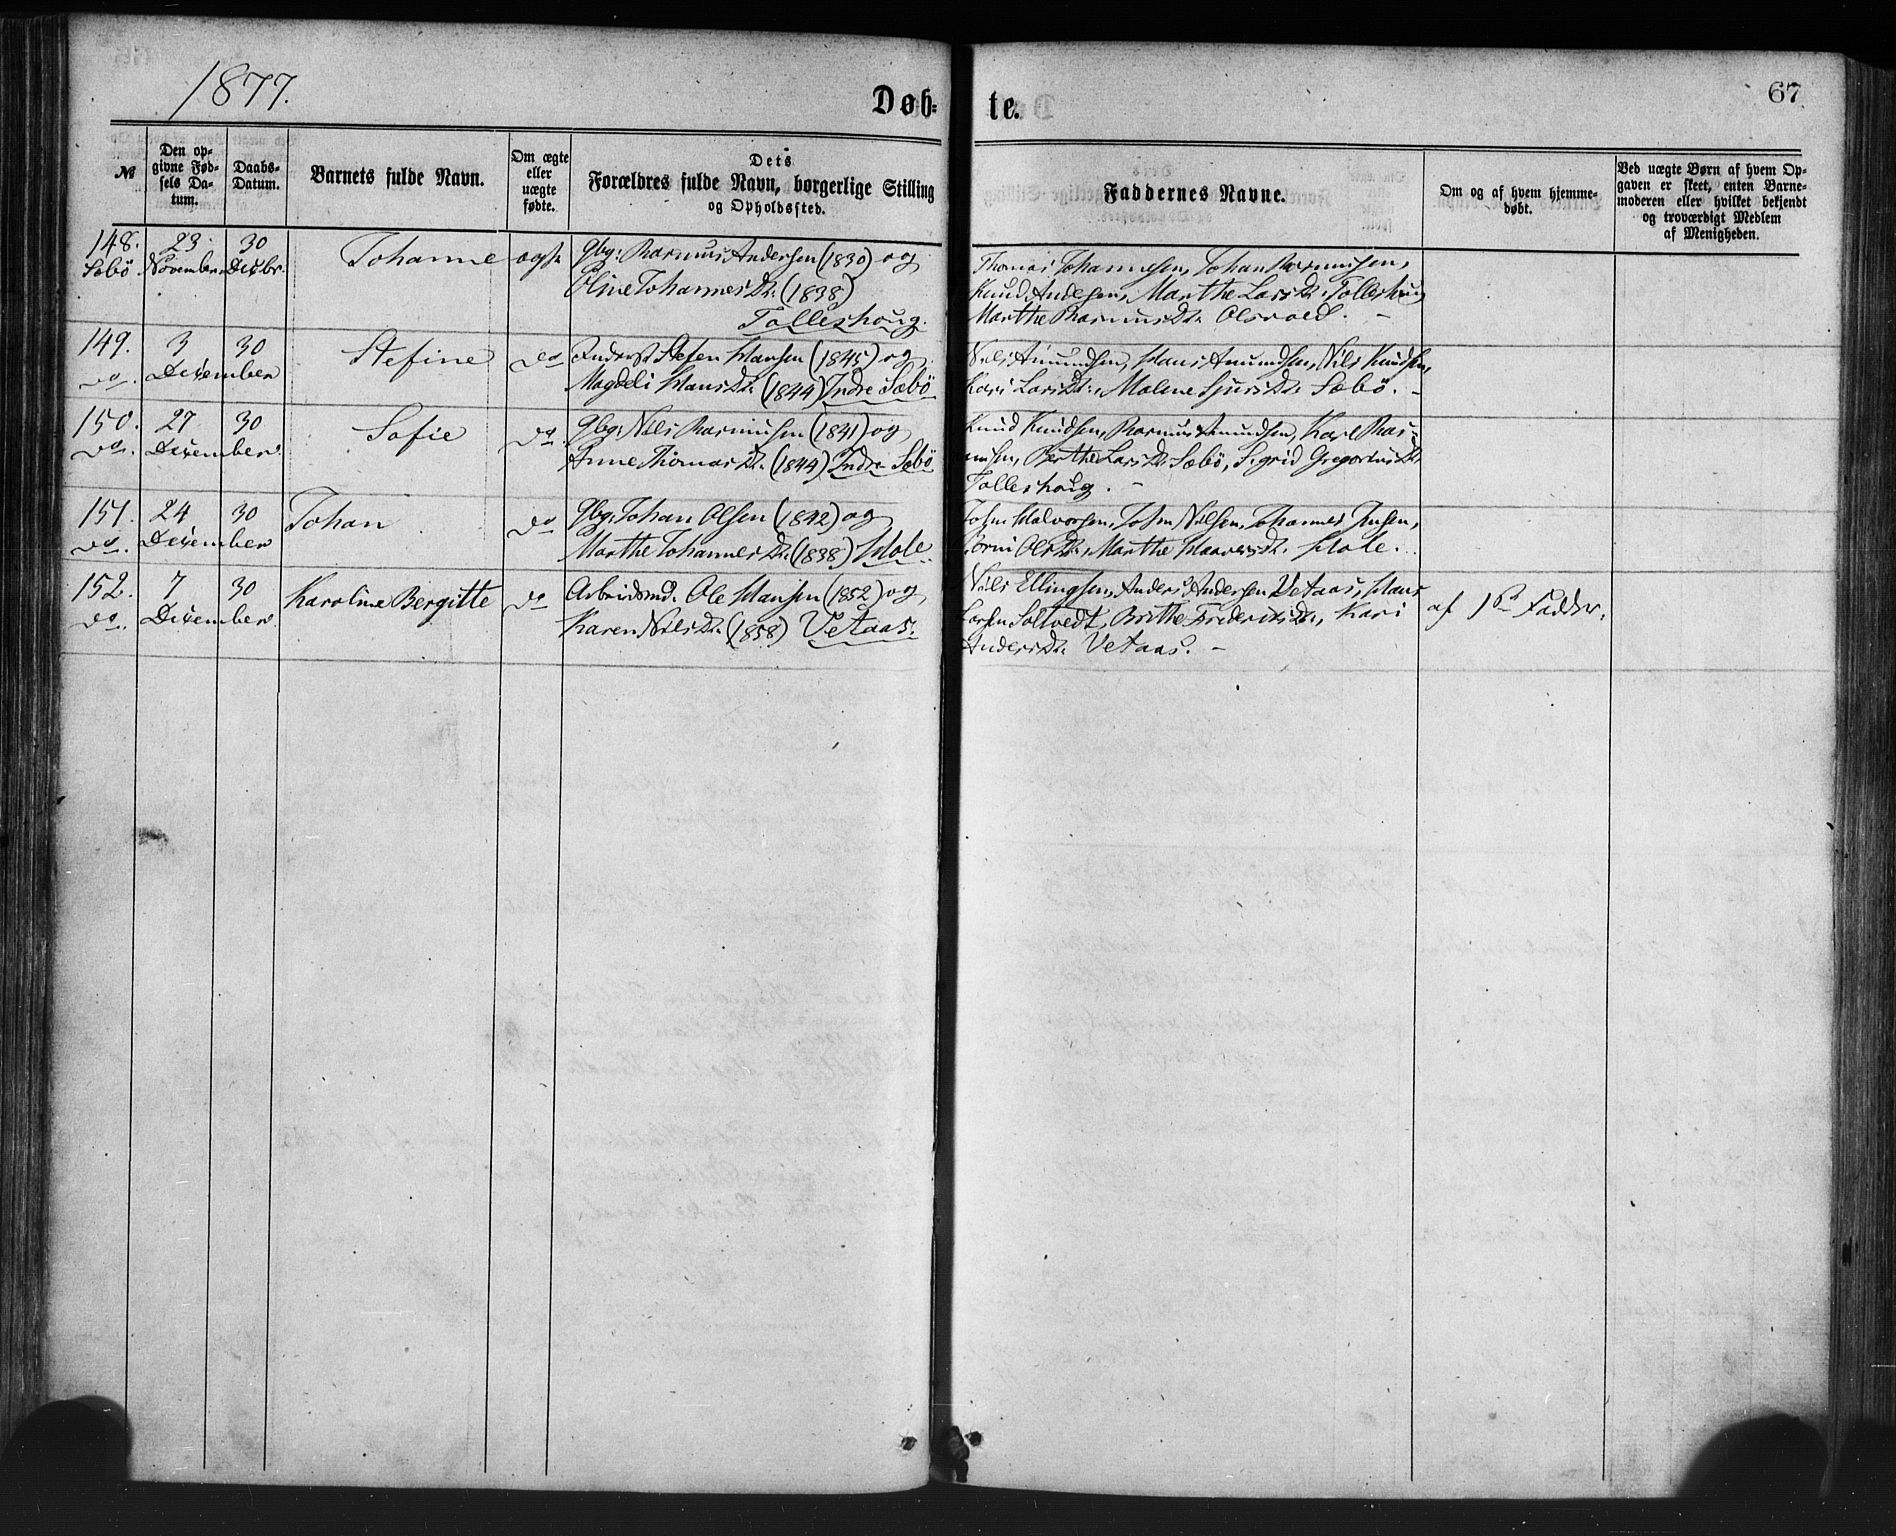 1877.
Døb-
te.
67
№
Den op-
givne Fød-
sels Da-
tum.
Daabs-
Datum.
Barnets fulde Navn.
Om ægte
eller
uægte
fødte.
Dets
Forældres fulde Navn, borgerlige Stilling
og Opholdssted.
Faddernes Navne.
Om og af hvem hjemme-
døbt.
Ved uægte Børn af hvem Op-
gaven er skeet, enten Barne-
moderen eller hvilket bekjendt
og troværdigt Medlem
af Menigheden.
148. 23 30 Johanne Gbg: Rasmus Andersen (1830) og
Sæbø November Dezbr.
Oline JohannesDr. (1838)
Tolleshoug.
Thomas Johannesen, Johan Rasmussen,
Knud Andersen, Marthe LarsDr. Tolleshoug
Marthe RasmusDr.
149. 3 30 Stefine do Stefen Hansen (1845) og
do. Dezember
Magdeli HansDr. (1844) Indre Sæbø
Nils Amundsen, Hans Amundsen, Nils Knudsen,
Kari LarsDr., Malene SjursDr. Sæbø.
150. 27 30 Sofie do. Gbg: Nils Rasmusen (1841) og
do. Dezember
Anne ThomasDr. (1844) Indre Sæbø
Knud Knudsen, Rasmus Amundsen, Karl Ras-
musen, Berthe LarsDr. Sæbø, Sigrid GregoriusDr.
Tolleshoug.
151. 24 30 Johan do Gbg: Johan Olsen (1842) og
do. Dezember
Marthe JohannesDr. (1838) Hole.
John Halvorsen, John Nilsen, Johannes Jensen,
OlsDr., Marthe HaaversDr. Hole.
152. 7 30 Karoline Bergitte do Arbeidsmd. Ole Hansen (1852) og
do. Dezember
Karen NilsDr. (1858) Vetaas.
Nils Ellingsen, Anders Andersen Vetaas, Hans
Larsen Soltvedt, Brithe FredriksDr., Kari
AndersDr. Vetaas.
af 1ste Fadder.